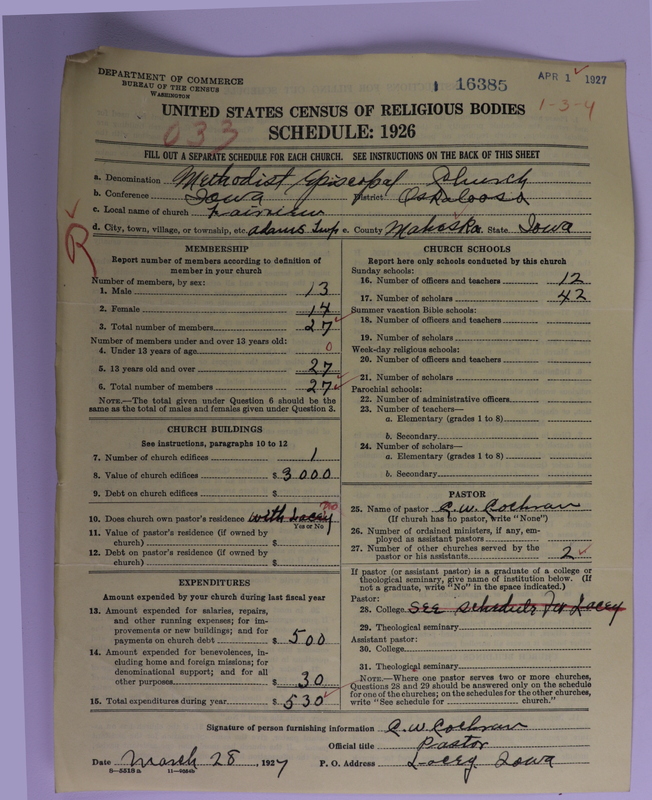 DEPARTMENT OF COMMERCE
BUREAU OF THE CENSUS
WASHINGTON
16385
APR 1 1927
1-3-4
UNITED STATES CENSUS OF RELIGIOUS BODIES
033
SCHEDULE: 1926
FILL OUT A SEPARATE SCHEDULE FOR EACH CHURCH. SEE INSTRUCTIONS ON THE BACK OF THIS SHEET
a. Denomination Methodist Episcopal Church
b. Conference Iowa District Oskaloosa
c. Local name of church Fairview
d. City, town, village, or township, etc. Adams Twp e. County Mahaska State Iowa
R
MEMBERSHIP
Report number of members according to definition of
member in your church
Number of members, by sex:
1. Male 13
2. Female 14
3. Total number of members 27
Number of members under and over 13 years old:
4. Under 13 years of age 0
5. 13 years old and over 27
6. Total number of members 27
NOTE.—The total given under Question 6 should be the
same as the total of males and females given under Question 3.
CHURCH BUILDINGS
See instructions, paragraphs 10 to 12
7. Number of church edifices 1
8. Value of church edifices $3000
9. Debt on church edifices $
10. Does church own pastor's residence with Lacey no
Yes or No
11. Value of pastor's residence (if owned by
church) $
12. Debt on pastor's residence (if owned by
church) $
EXPENDITURES
Amount expended by your church during last fiscal year
13. Amount expended for salaries, repairs,
and other running expenses; for im-
provements or new buildings; and for
payments on church debt $500
14. Amount expended for benevolences, in-
cluding home and foreign missions; for
denominational support; and for all
other purposes $30
15. Total expenditures during year $530
CHURCH SCHOOLS
Report here only schools conducted by this church
Sunday schools:
16. Number of officers and teachers 12
17. Number of scholars 42
Summer vacation Bible schools:
18. Number of officers and teachers
19. Number of scholars
Week-day religious schools:
20. Number of officers and teachers
21. Number of scholars
Parochial schools:
22. Number of administrative officers
23. Number of teachers—
a. Elementary (grades 1 to 8)
b. Secondary
24. Number of scholars—
a. Elementary (grades 1 to 8)
b. Secondary
PASTOR
25. Name of pastor C. W. Cochran
(If church has no pastor, write "None")
26. Number of ordained ministers, if any, em-
ployed as assistant pastors
27. Number of other churches served by the
pastor or his assistants 2
If pastor (or assistant pastor) is a graduate of a college or
theological seminary, give name of institution below. (If
not a graduate, write "No" in the space indicated.)
Pastor:
28. College See schedule for Lacey
29. Theological seminary
Assistant pastor:
30. College
31. Theological seminary
NOTE.—Where one pastor serves two or more churches,
Questions 28 and 29 should be answered only on the schedule
for one of the churches; on the schedules for the other churches,
write "See schedule for church."
Signature of person furnishing information C. W. Cochran
Official title Pastor
Date March 28, 1927 P. O. Address Lacey Iowa
8—5518a